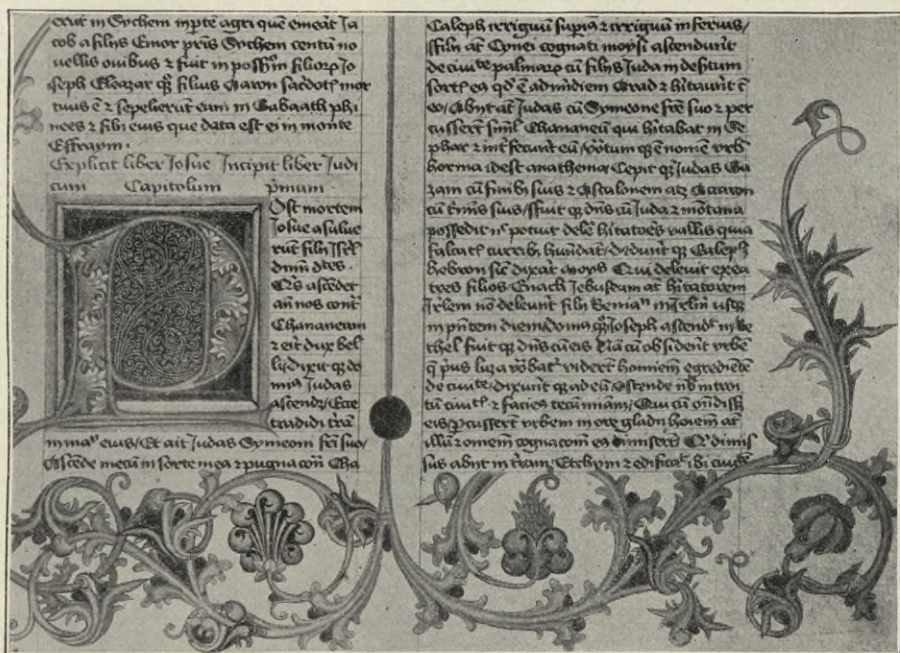 erat in Sychem in pte agri quē emeāt Ja
cob a filijs Emor pr̄is Sychem centū no
vellis ovibus ⁊ fuit in poss̄oꝫ filioꝝ Jo
seph Eleazar qꝫ filius Aaron sac̄dotꝭ mor
tuus ē ⁊ sepelierūt eum in Gabaath phi
nees ⁊ filii eius que data est ei in monte
Effraym ·
Explicit liber Josue Incipit liber Judi
cum Capitolum p̄mum
Ost mortem
Josue 
rūt filij Isrl̄
dn̄m dc̄es ·
Q̄s ascēdet
an̄ nos cont̄
Chananeum
⁊ erit dux bel
li dixit qꝫ do
min⁹ Judas
ascendꝫ Ecce
tradidi t̄rā
in manꝰ eius / Et ait Judas Symeoni fr̄i suo /
Ascēde mecū in sorte mea ⁊ pugna cōn̄ Cha
Caleph irriguū supiꝰ ⁊ irriguū inferius /
ffilij āt Cynei cognati moysi ascendūnt
de ciuitͤ palmaꝝ cū filijs Juda in desertum
sortꝭ eꝰ qd̄ ē ad midiem Arad ⁊ hītauūt c̄
eo / Abijt āt Judas cū Symeone fr̄e suo ⁊ per
cusserūt siml̄ Chananeū qui hītabat in Se
phar ⁊ int̄fecūt eū / Votum qꝫ ē nomē vrbꝭ
horma idest anathema Cepit qꝫ Judas Ga
zam cū finibꝫ suis ⁊ Ascalonem atqꝫ Accaron
cū t̄mīs suis / ffuit qꝫ dn̄s cū Juda ⁊ mōtana
possedit nͨ potuit delē hītatoēs vallis quia
falcatꝭ curribꝫ hūndāt / dedūnt qꝫ Calepħ
hebron sic̄ dixāt moyses Qui deleuit ex ea
tres filios Enach Jebuseum āt hītatorem
Jrl̄em nō deleūnt filij Beniaī in Jrl̄m usqꝫ
in pn̄tem diem domꝰ qꝫ Joseph ascendͭ in be
thel fuit qꝫ dn̄s cū eis Nā cū obsidērt vrbē
q̄ pͥus luza vōbat͛ viderūt homīem egrediētē
de ciuitͤ / dixūnt qꝫ ad eū Ostende nob̄ introi
tū ciuitꝭ ⁊ faciemꝰ tecū mīam / Qui cū on̄diss̄
eis pcusserūt vrbem in ore gladij hoiēm āt
illū ⁊ omēm cognacōm eꝰ dimiserūt Qͥ dimis
sus abijt in t̄ram Etchym ⁊ edificāͭ ibi ciuitē